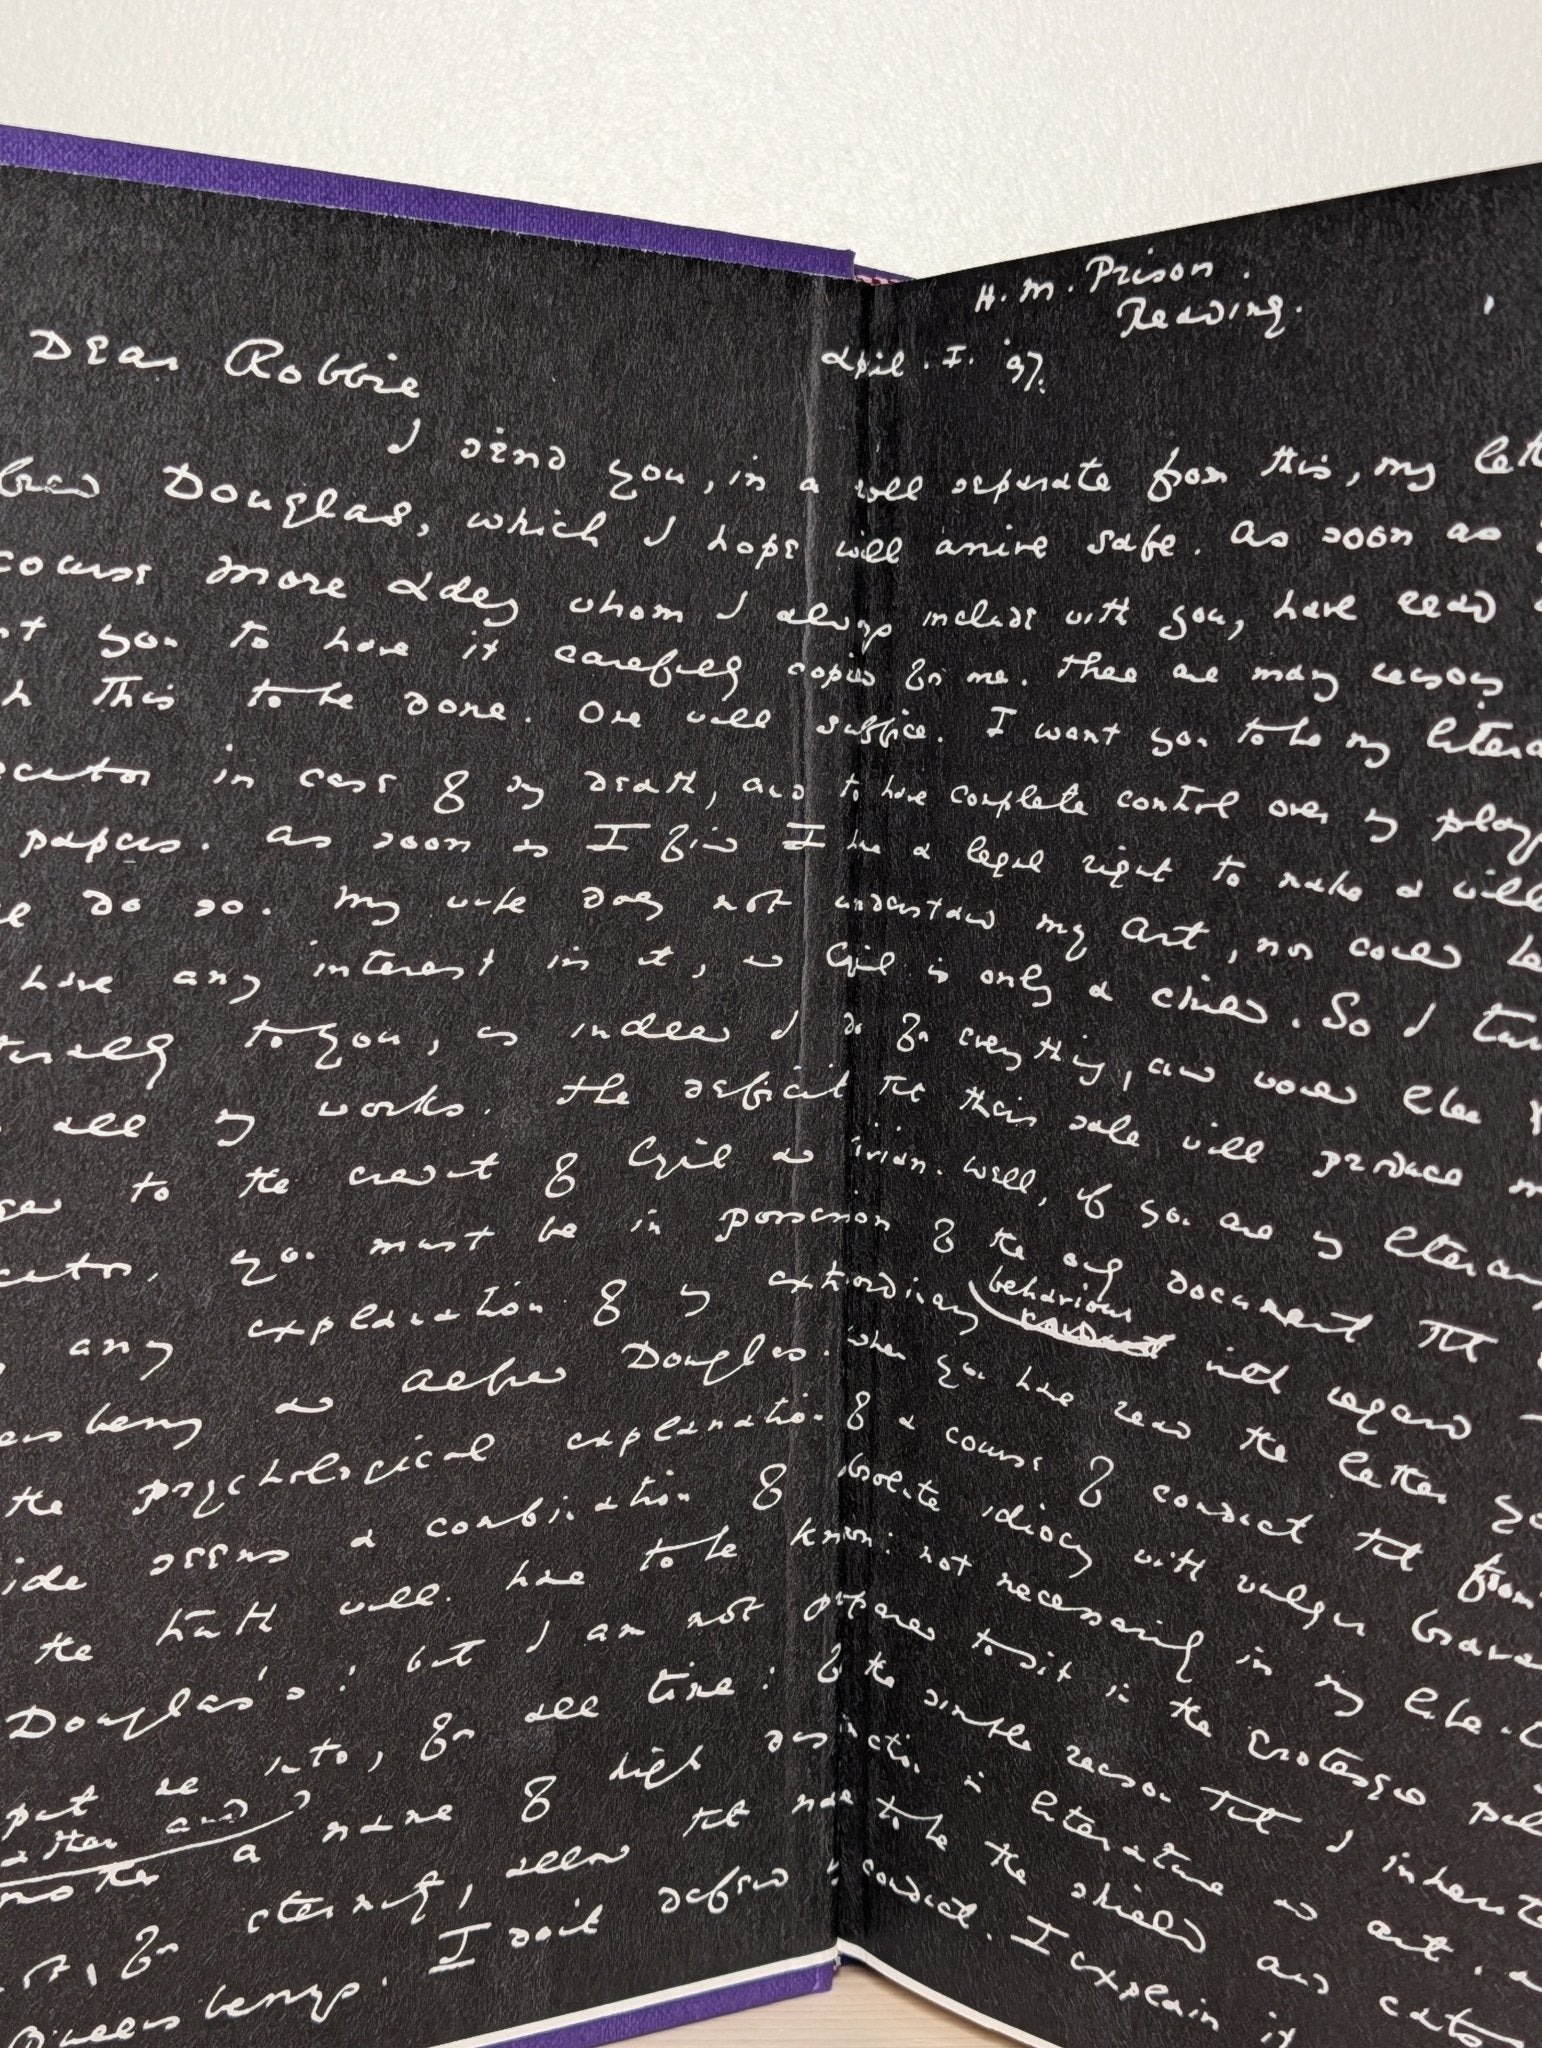 H.M. Prison.
Reading.
Dear Robbie
April. I. '97.
I send you, in a roll separate from this, my lett
fred Douglas, which I hope will arrive safe. As soon as
course More Adey whom I always include with you, have read
nt you to have it carefully copied for me. There are many reasons
h this to be done. One will suffice. I want you to be my litera
ecutor in case of my death, and to have complete control over my plays
papers. As soon as I find I have a legal right to make a will
do so. My wife does not understand my art, nor could be
have any interest in it, and Cyril is only a child. So I turn
turally to you, as indeed I do for everything, and would like
all my works. The deficit that their sale will produce m
to the credit of Cyril and Vivian. Well, if you are my literary
ecutor, you must be in possession of the only document that
any explanation of my extraordinary
behaviour
conduct with regard
eensberry and Alfred Douglas. When you have read the letter yo
the psychological explanation of a course of conduct that from
ide seems a combination of absolute idiocy with vulgar brava
the truth will have to be known: not necessarily in my life-
Douglas's: but I am not prepared to sit in the grotesque pil
put me into, for all time: for the simple reason that I inherite
ther and
mother a name of high distinction in literature and art.
for eternity, allow that name to be the shield and cats
Queensberrys. I don't defend my conduct. I explain it